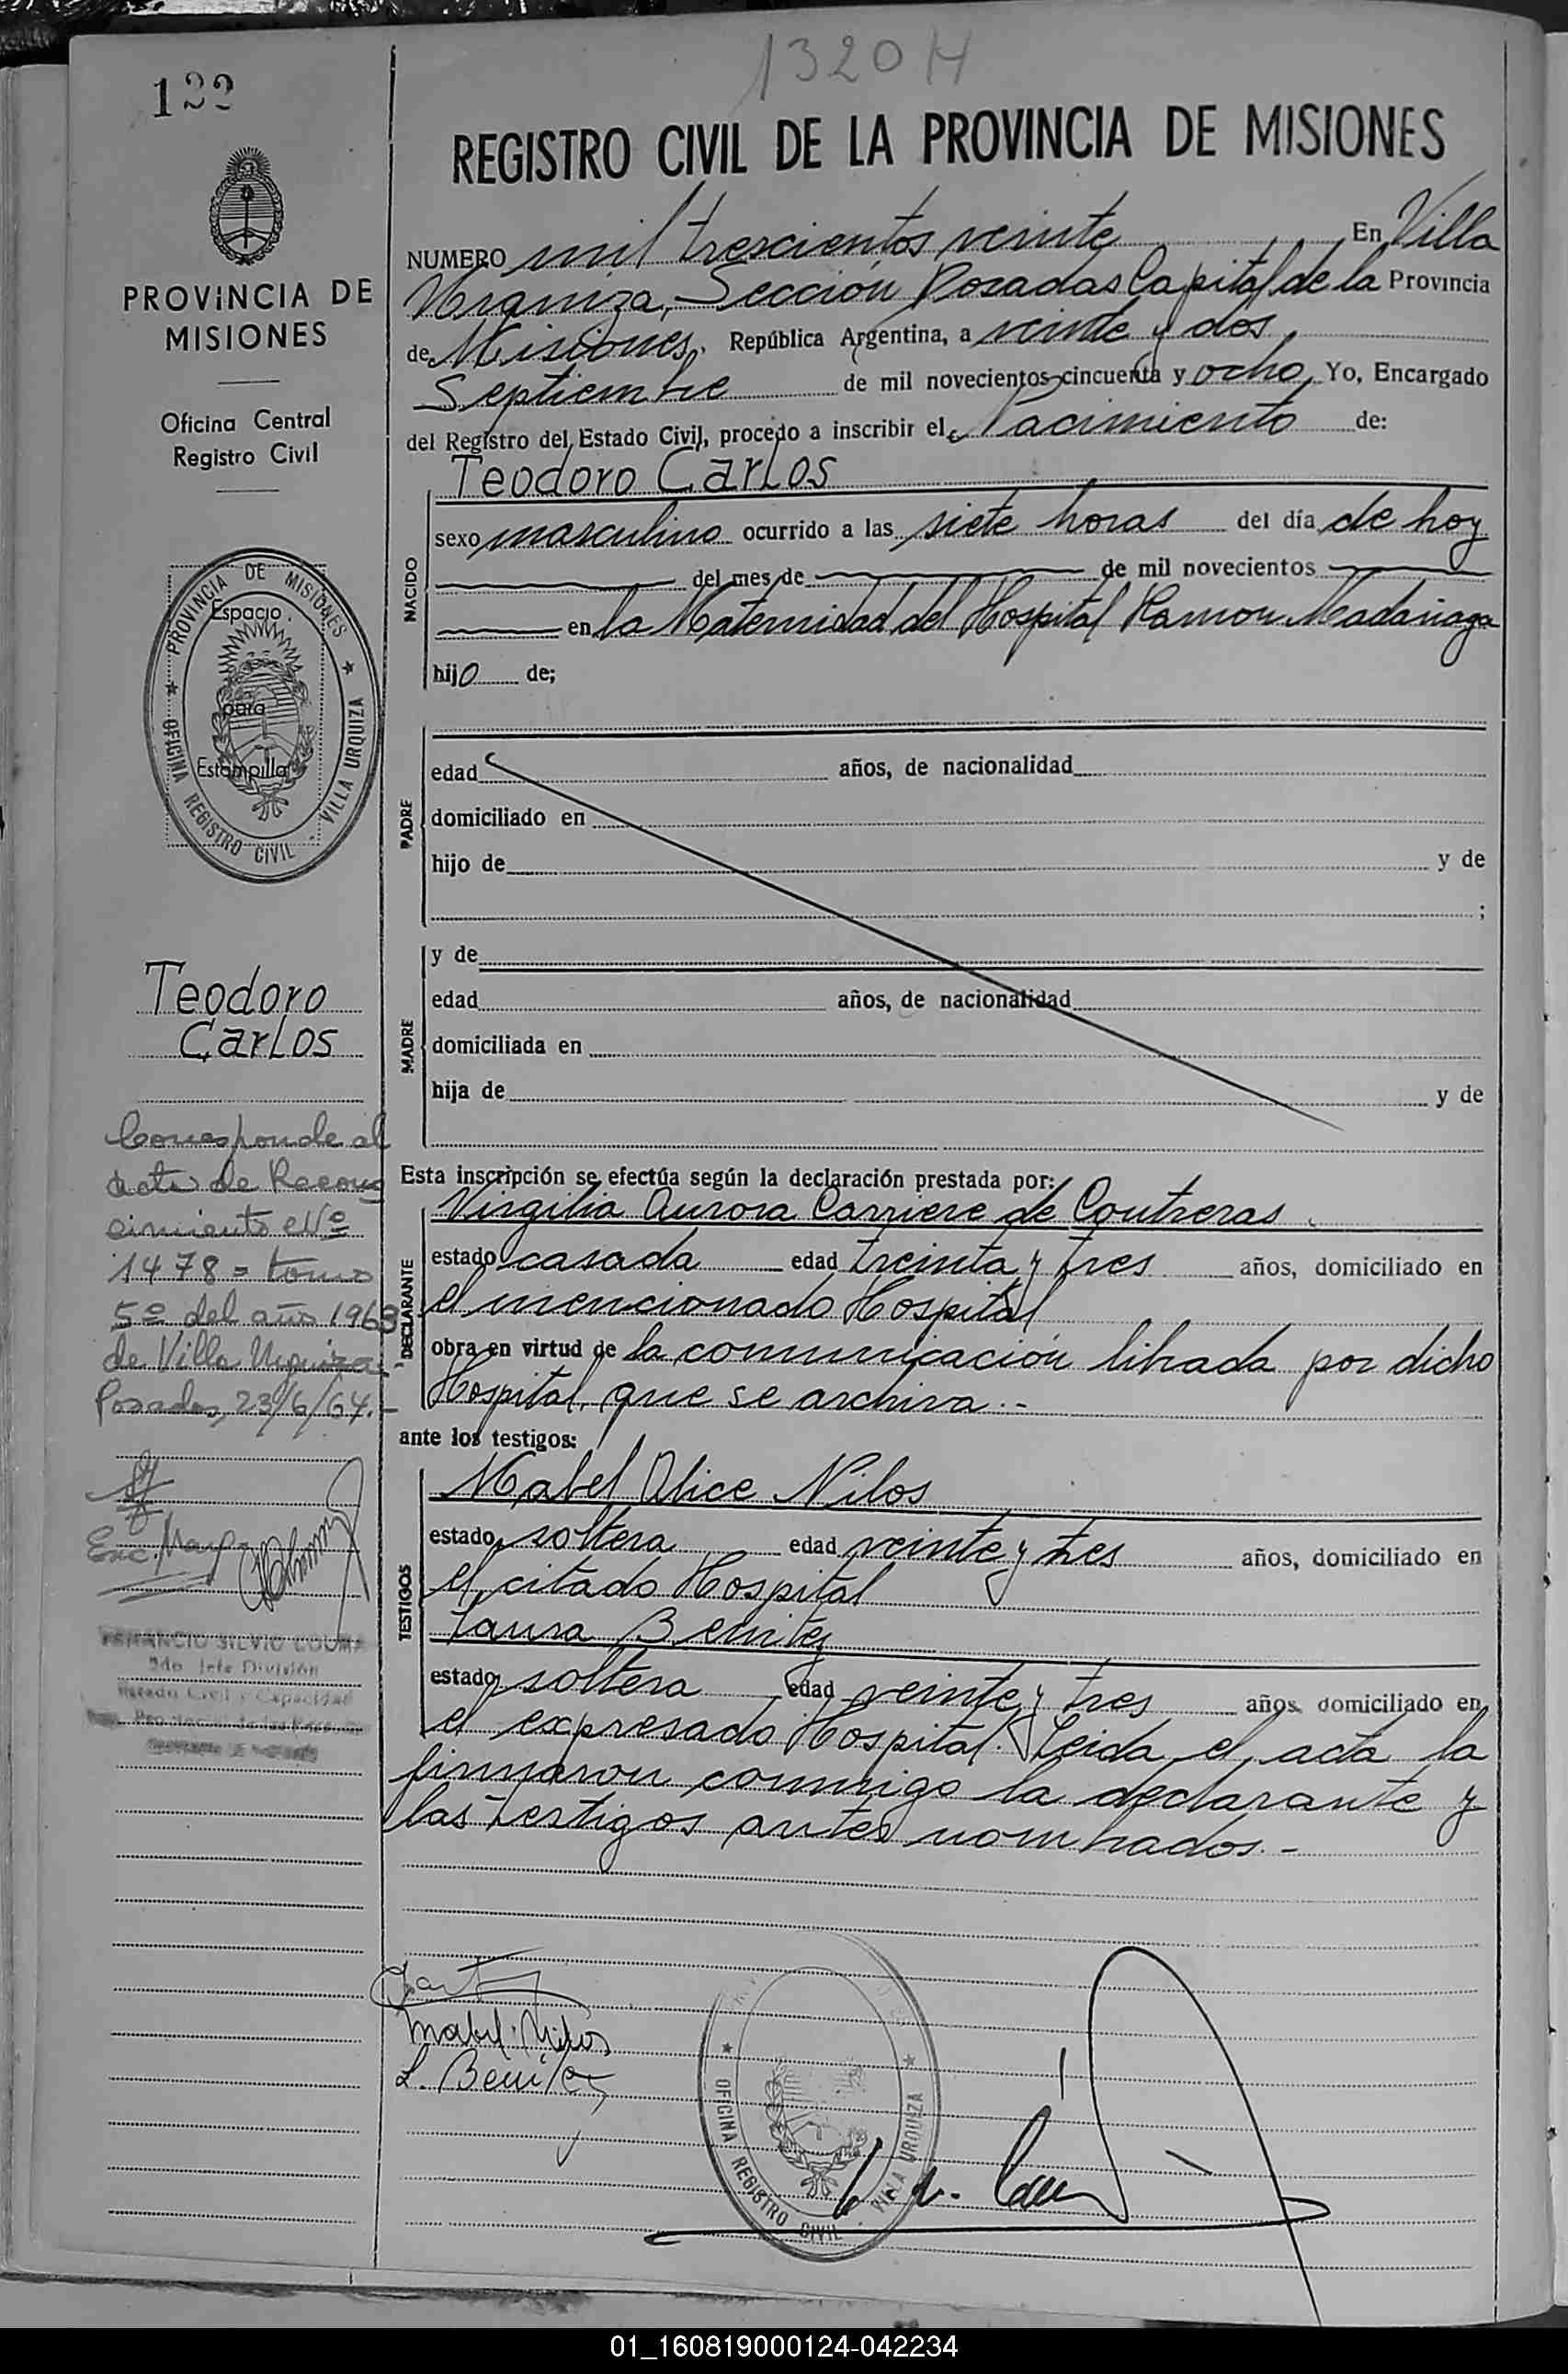 1320 H
122
REGISTRO CIVIL DE LA PROVINCIA DE MISIONES
PROVINCIA DE
MISIONES
Oficina Central
Registro Civil
PROVINCIA DE MISIONES
Espacio
para
Estampilla
OFICINA REGISTRO CIVIL - VILLA URQUIZA
Teodoro
Carlos
Corresponde al
acta de Recono
cimiento Nº
1478 = tomo
5º del año 1963
de Villa Urquiza
Posadas, 23/6/64.-
Enc. Marg.
SILVIO
2do Jefe División
Estado Civil y Capacidad
NUMERO mil trescientos veinte En Villa
Urquiza, Sección Posadas Capital de la Provincia
de Misiones, República Argentina, a veinte y dos
Septiembre de mil novecientos cincuenta y ocho, Yo, Encargado
del Registro del Estado Civil, procedo a inscribir el Nacimiento de:
Teodoro Carlos
NACIDO
sexo masculino ocurrido a las siete horas del día de hoy
del mes de de mil novecientos
en la Maternidad del Hospital Ramon Madariaga
hijo de;
PADRE
edad años, de nacionalidad
domiciliado en
hijo de y de
;
MADRE
y de
edad años, de nacionalidad
domiciliada en
hija de y de
Esta inscripción se efectúa según la declaración prestada por:
DECLARANTE
Virgilia Aurora Carriere de Contreras
estado casada edad treinta y tres años, domiciliado en
el mencionado Hospital
obra en virtud de la comunicación librada por dicho
Hospital, que se archiva.-
ante los testigos:
TESTIGOS
Mabel Alice Nilos
estado soltera edad veinte y tres años, domiciliado en
el citado Hospital
Laura Benitez
estado soltera edad veinte y tres años, domiciliado en
el expresado Hospital. Leida el acta la
firmaron conmigo la declarante y
las testigos antes nombrados.-
Mabel Nilos
L. Benitez
OFICINA REGISTRO CIVIL - VILLA URQUIZA
01_160819000124-042234